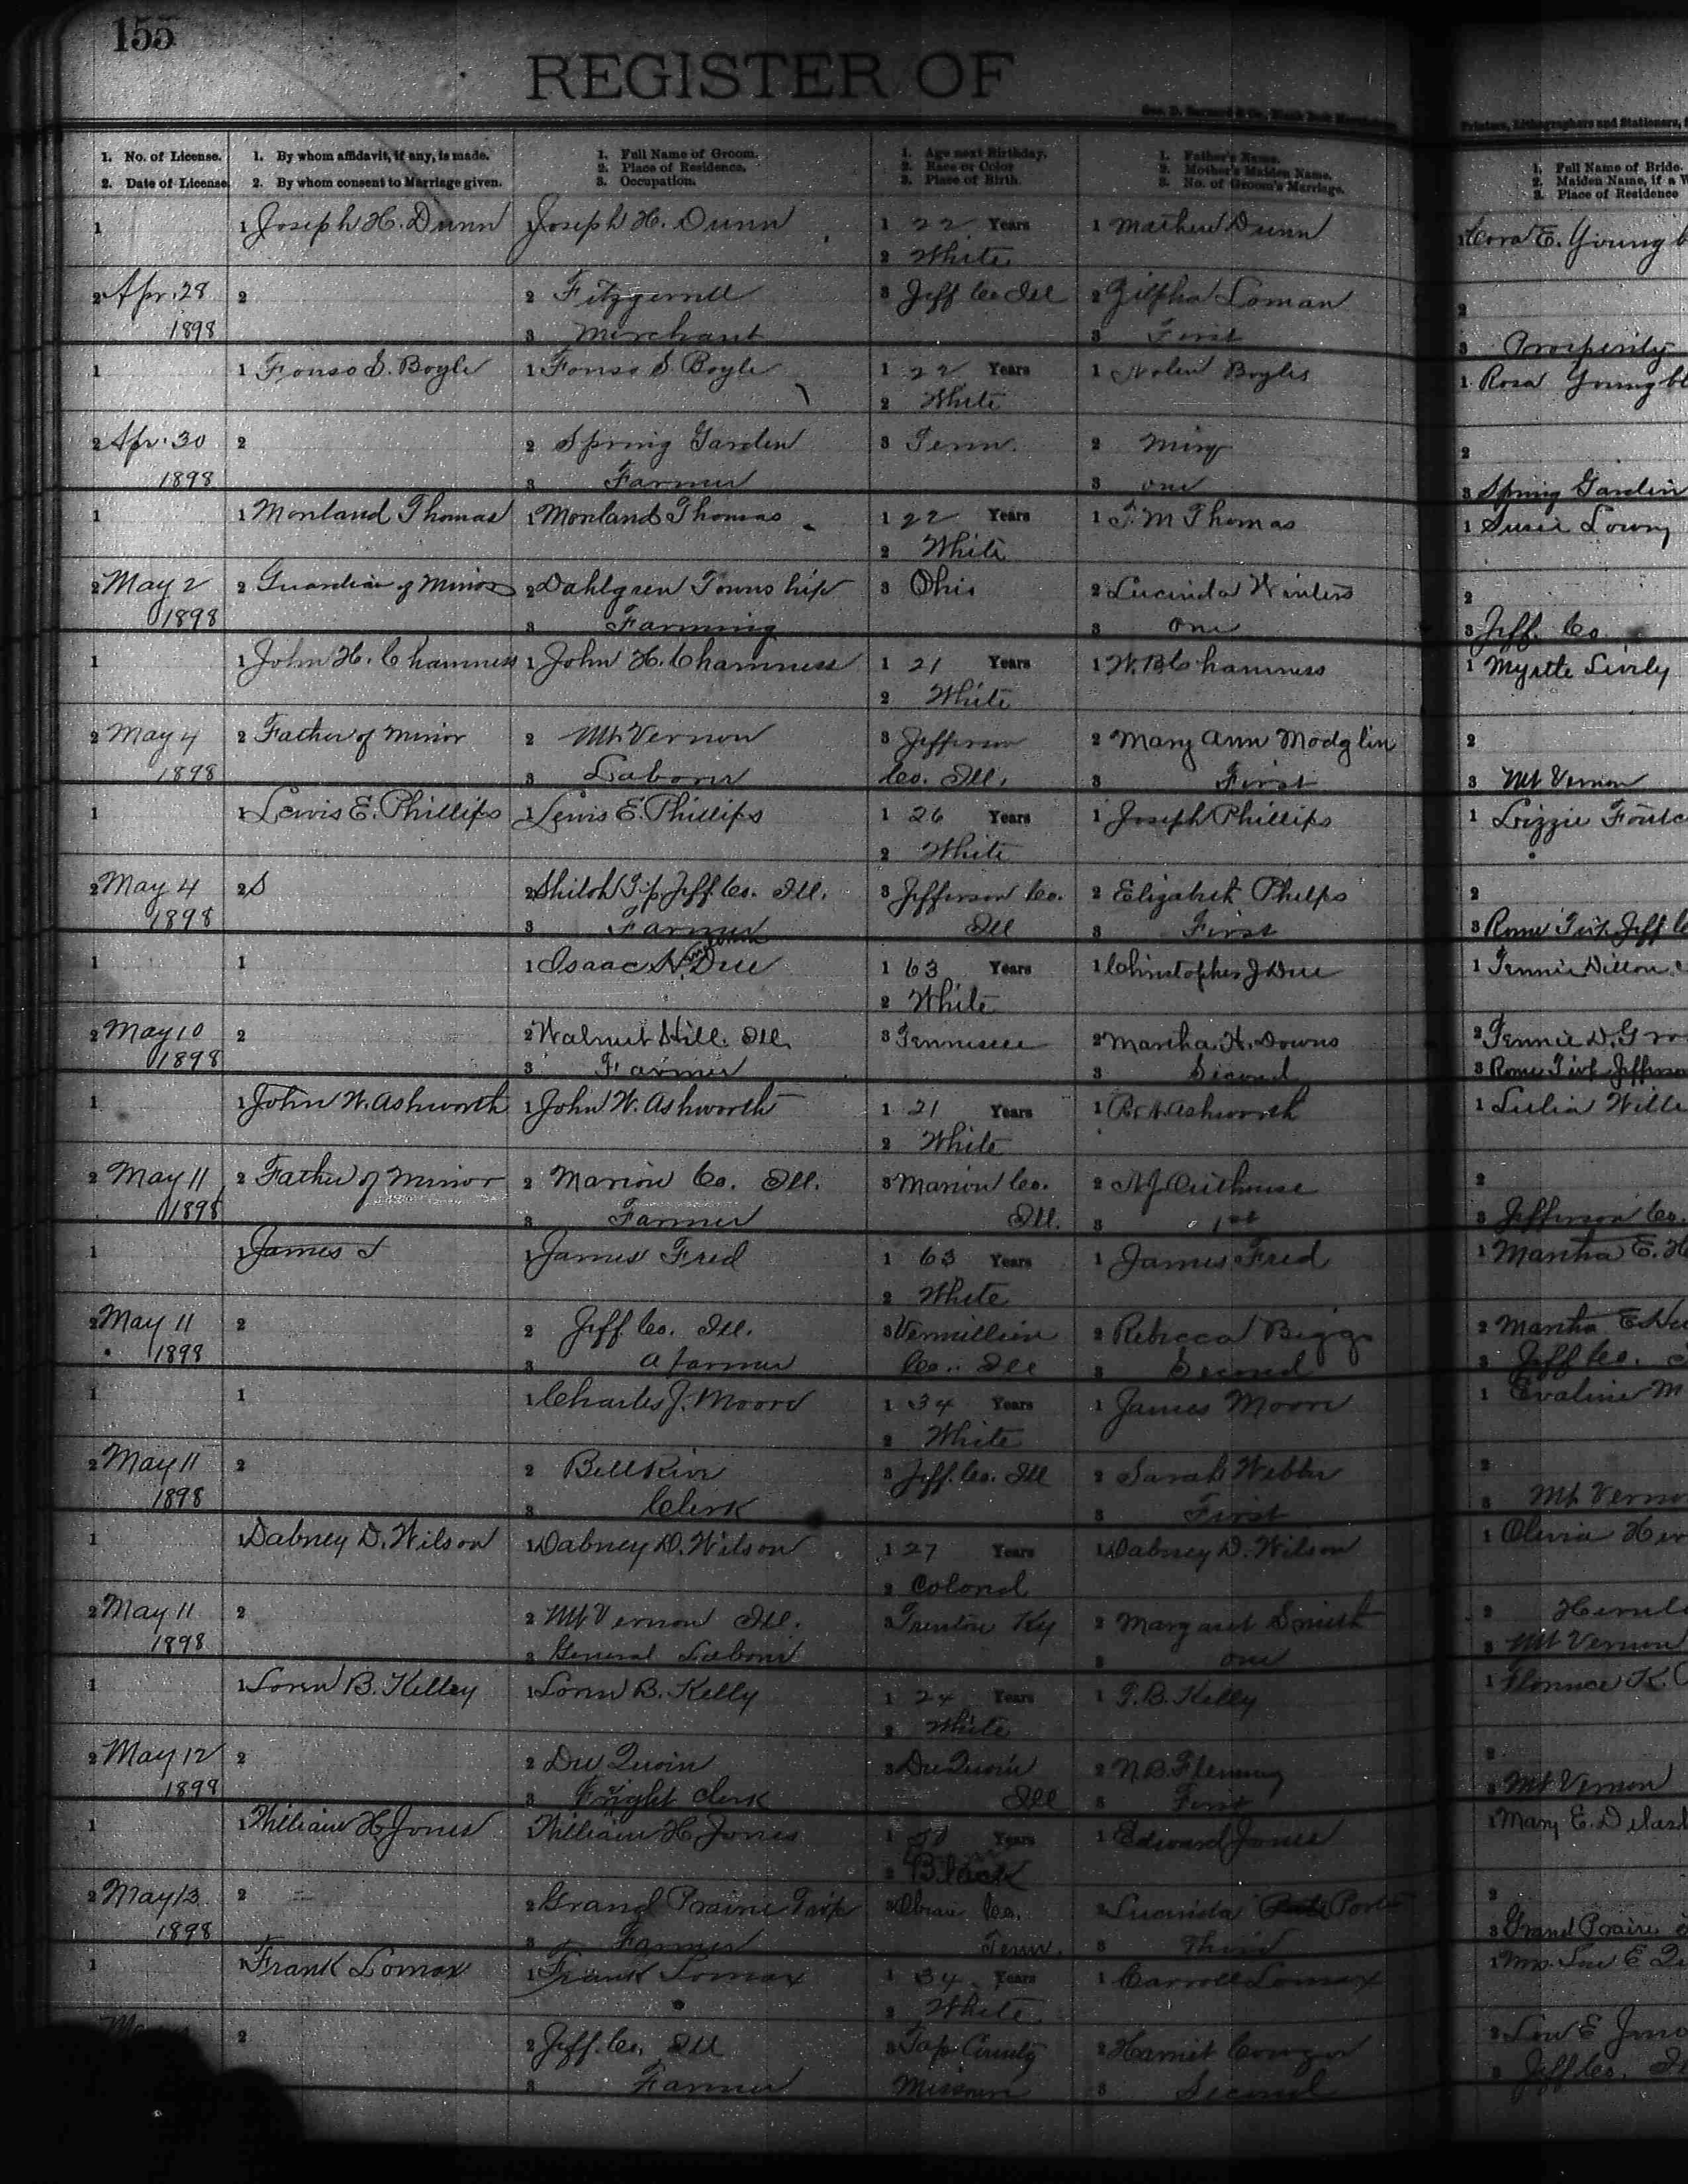 155
REGISTER OF
1. No. of License.
2. Date of License.
1. By whom affidavit, if any, is made.
2. By whom consent to Marriage given.
1. Full Name of Groom.
2. Place of Residence.
3. Occupation.
1. Age next Birthday.
2. Race or Color
3. Place of Birth.
1. Father's Name.
2. Mother's Maiden Name.
3. No. of Groom's Marriage.
Printers, Lithographers and Stationers,
1. Full Name of Bride.
2. Maiden Name, if a W
3. Place of Residence
1 1 Joseph H. Dunn 1 Joseph H. Dunn 1 22 Years 1 Mathew Dunn 1 Cora E. Young b
2 White
2 Apr. 28 2 2 Fitzgerrell 3 Jeff Co Ill 2 Zilpha Loman 2
1898 3 Merchant 3 First 3 Prosperity
1 1 Fonso S. Boyle 1 Fonso S Boyle 1 22 Years 1 Nolen Boyles 1 Rosa Youngbl
2 White
2 Apr. 30 2 2 Spring Garden 3 Tenn. 2 2
1898 3 Farmer 3 one 3 Spring Garden
1 1 Monland Thomas 1 Monland Thomas 1 22 Years 1 T. M Thomas 1 Susie Lowry
2 White
2 May 2 2 Guardian of Minor 2 Dahlgren Township 3 Ohio 2 Lucinda Winters 2
1898 3 Farming 3 one 3 Jeff. Co
1 1 John H. Chamness 1 John H. Chamness 1 21 Years 1 W. B Chamness 1 Myrtle Lively
2 White
2 May 4 2 Father of Minor 2 Mt Vernon 3 Jefferson 2 Mary Ann Modglin 2
1898 3 Laborer Co. Ill. 3 First 3 Mt Vernon
1 1 Lewis E. Phillips 1 Lewis E. Phillips 1 26 Years 1 Joseph Phillips 1 Lizzie
2 White
2 May 4 2 S 2 Shiloh Tp Jeff Co. Ill. 3 Jefferson Co. 2 Elizabeth Phelps 2
1898 3 Farmer Ill 3 First 3 Rome Twp. Jeff C
1 1 1 Isaac N. Due 1 63 Years 1 Christopher J Due 1 Tennie Dillon
2 White
2 May 10 2 2 Walnut Hill. Ill. 3 Tennessee 2 Martha H. Downs 2 Tennie D. Gro
1898 3 Farmer 3 Second 3 Rome Twp Jefferso
1 1 John W. Ashworth 1 John W. Ashworth 1 21 Years 1 R. A. Ashworth 1 Lulia Willi
2 White
2 May 11 2 Father of Minor 2 Marion Co. Ill. 3 Marion Co. 2 A J Outhouse 2
1898 3 Farmer Ill. 3 1st 3 Jefferson Co.
1 1 James 1 James Fred 1 63 Years 1 James Fred 1 Martha E. H
2 White
2 May 11 2 2 Jeff. Co. Ill. 3 Vermillion 2 Rebecca Biggs 2 Martha E
1898 3 a farmer Co. Ill 3 Second 3 Jeff Co.
1 1 1 Charles J. Moore 1 34 Years 1 James Moore 1 Evaline M
2 White
2 May 11 2 2 Bell River 3 Jeff. Co. Ill 2 Sarah Webber 2
1898 3 Clerk 3 First 3 Mt Verno
1 1 Dabney D. Wilson 1 Dabney D. Wilson 1 27 Years 1 Dabney D. Wilson 1 Olivia Her
2 Colored
2 May 11 2 2 Mt Vernon Ill. 3 Trenton Ky 2 Margaret Smith 2
1898 3 General Laborer 3 one 3 Mt Vernon
1 1 Loren B. Kelley 1 Loren B. Kelly 1 24 Years 1 T. B. Kelly 1 Florence K.
2 White
2 May 12 2 2 Du Quoin 3 Du Quoin 2 N. B. Fleming 2
1898 3 Freight Clerk Ill 3 First 3 Mt Vernon
1 1 William H Jones 1 William H Jones 1 Years 1 Edward Jones 1 Mary E.
2 Black
2 May 13 2 2 Grand Prairie Twp 3 Obion Co. 2 Lucinda Porter 2
1898 3 Farmer Tenn. 3 Third 3 Grand Prairie
1 1 Frank Lomax 1 Frank Lomax 1 34 Years 1 Carroll Lomax 1 Mrs. Lou E
2 White
2 2 Jeff. Co. Ill 3 County 2 Harriet 2 Lou E
3 Farmer Missouri 3 Second 3 Jeff Co.